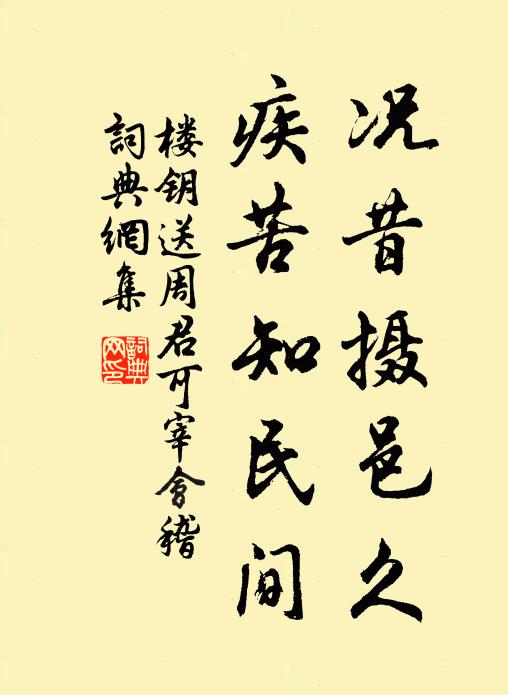 况昔摄邑久
疾苦知民间
楼钥送周君可宰会稽
詞典網集
詞典网印